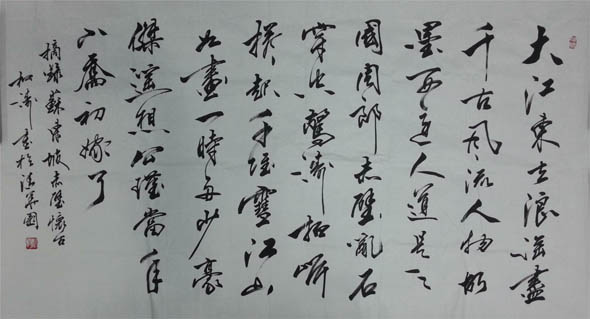 大江東去浪淘盡
千古風流人物故
壘西邊人道是三
國周郎赤壁亂石
穿空驚濤拍岸
捲起千堆雪江山
如畫一時多少豪
傑遙想公瑾當年
小喬初嫁了
摘錄蘇東坡赤壁懷古
松濤書於清華園